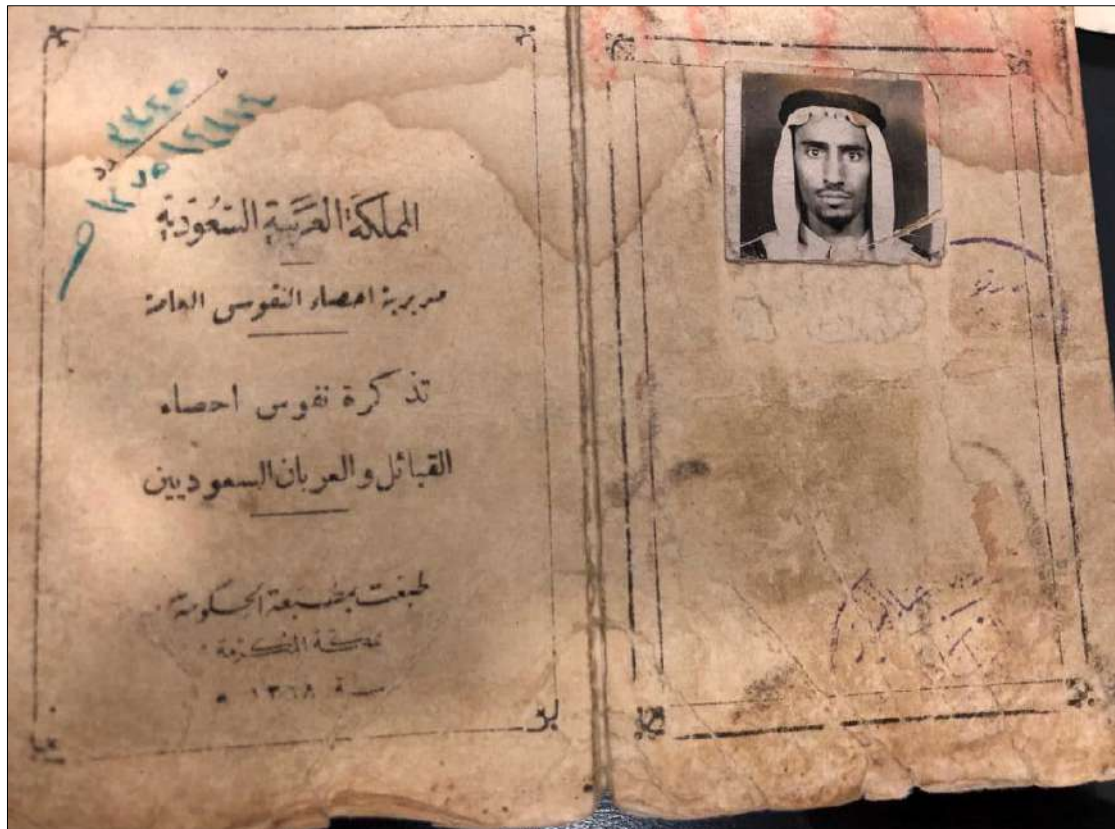 ٣٤٤٥
المملكة العربية السعودية
مديرية احصاء النفوس العامة
تذكرة نفوس احصاء
القبائل والعربان السعوديين
طبعت بمطبعة الحكومة
بمكة المكرمة
سنة ١٣٦٨ ه